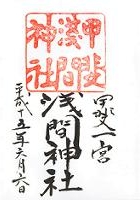 甲斐
淺間
神社
甲斐一宮
浅間神社
平成十五年六月六日